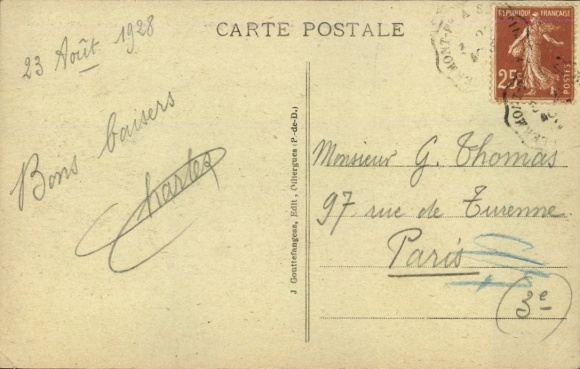 23 Août 1928
CARTE POSTALE
RÉPUBLIQUE FRANÇAISE
25c
POSTES
Bons baisers
Charles
J Gouttefangeas, Edit., Olliergues (P.-de-D.)
Monsieur G. Thomas
97 rue de Turenne
Paris
3e